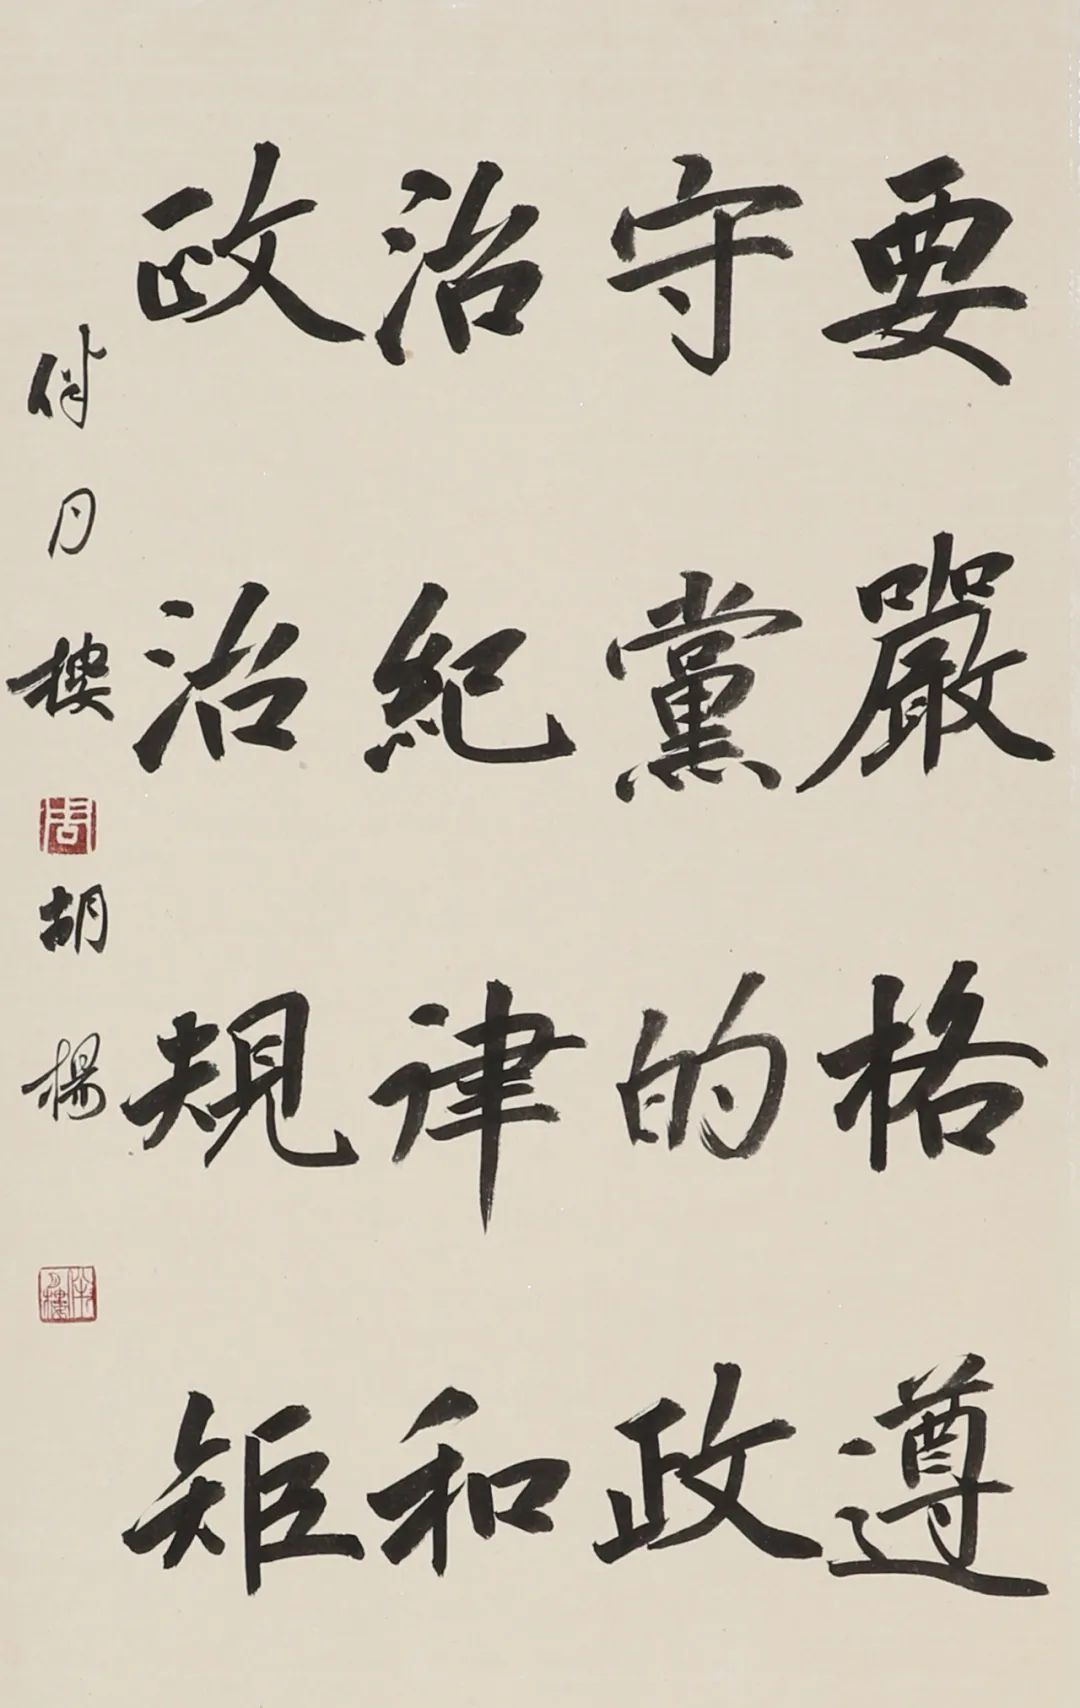 要嚴格遵
守黨的政
治紀律和
政治規矩
伴月樓 胡楊